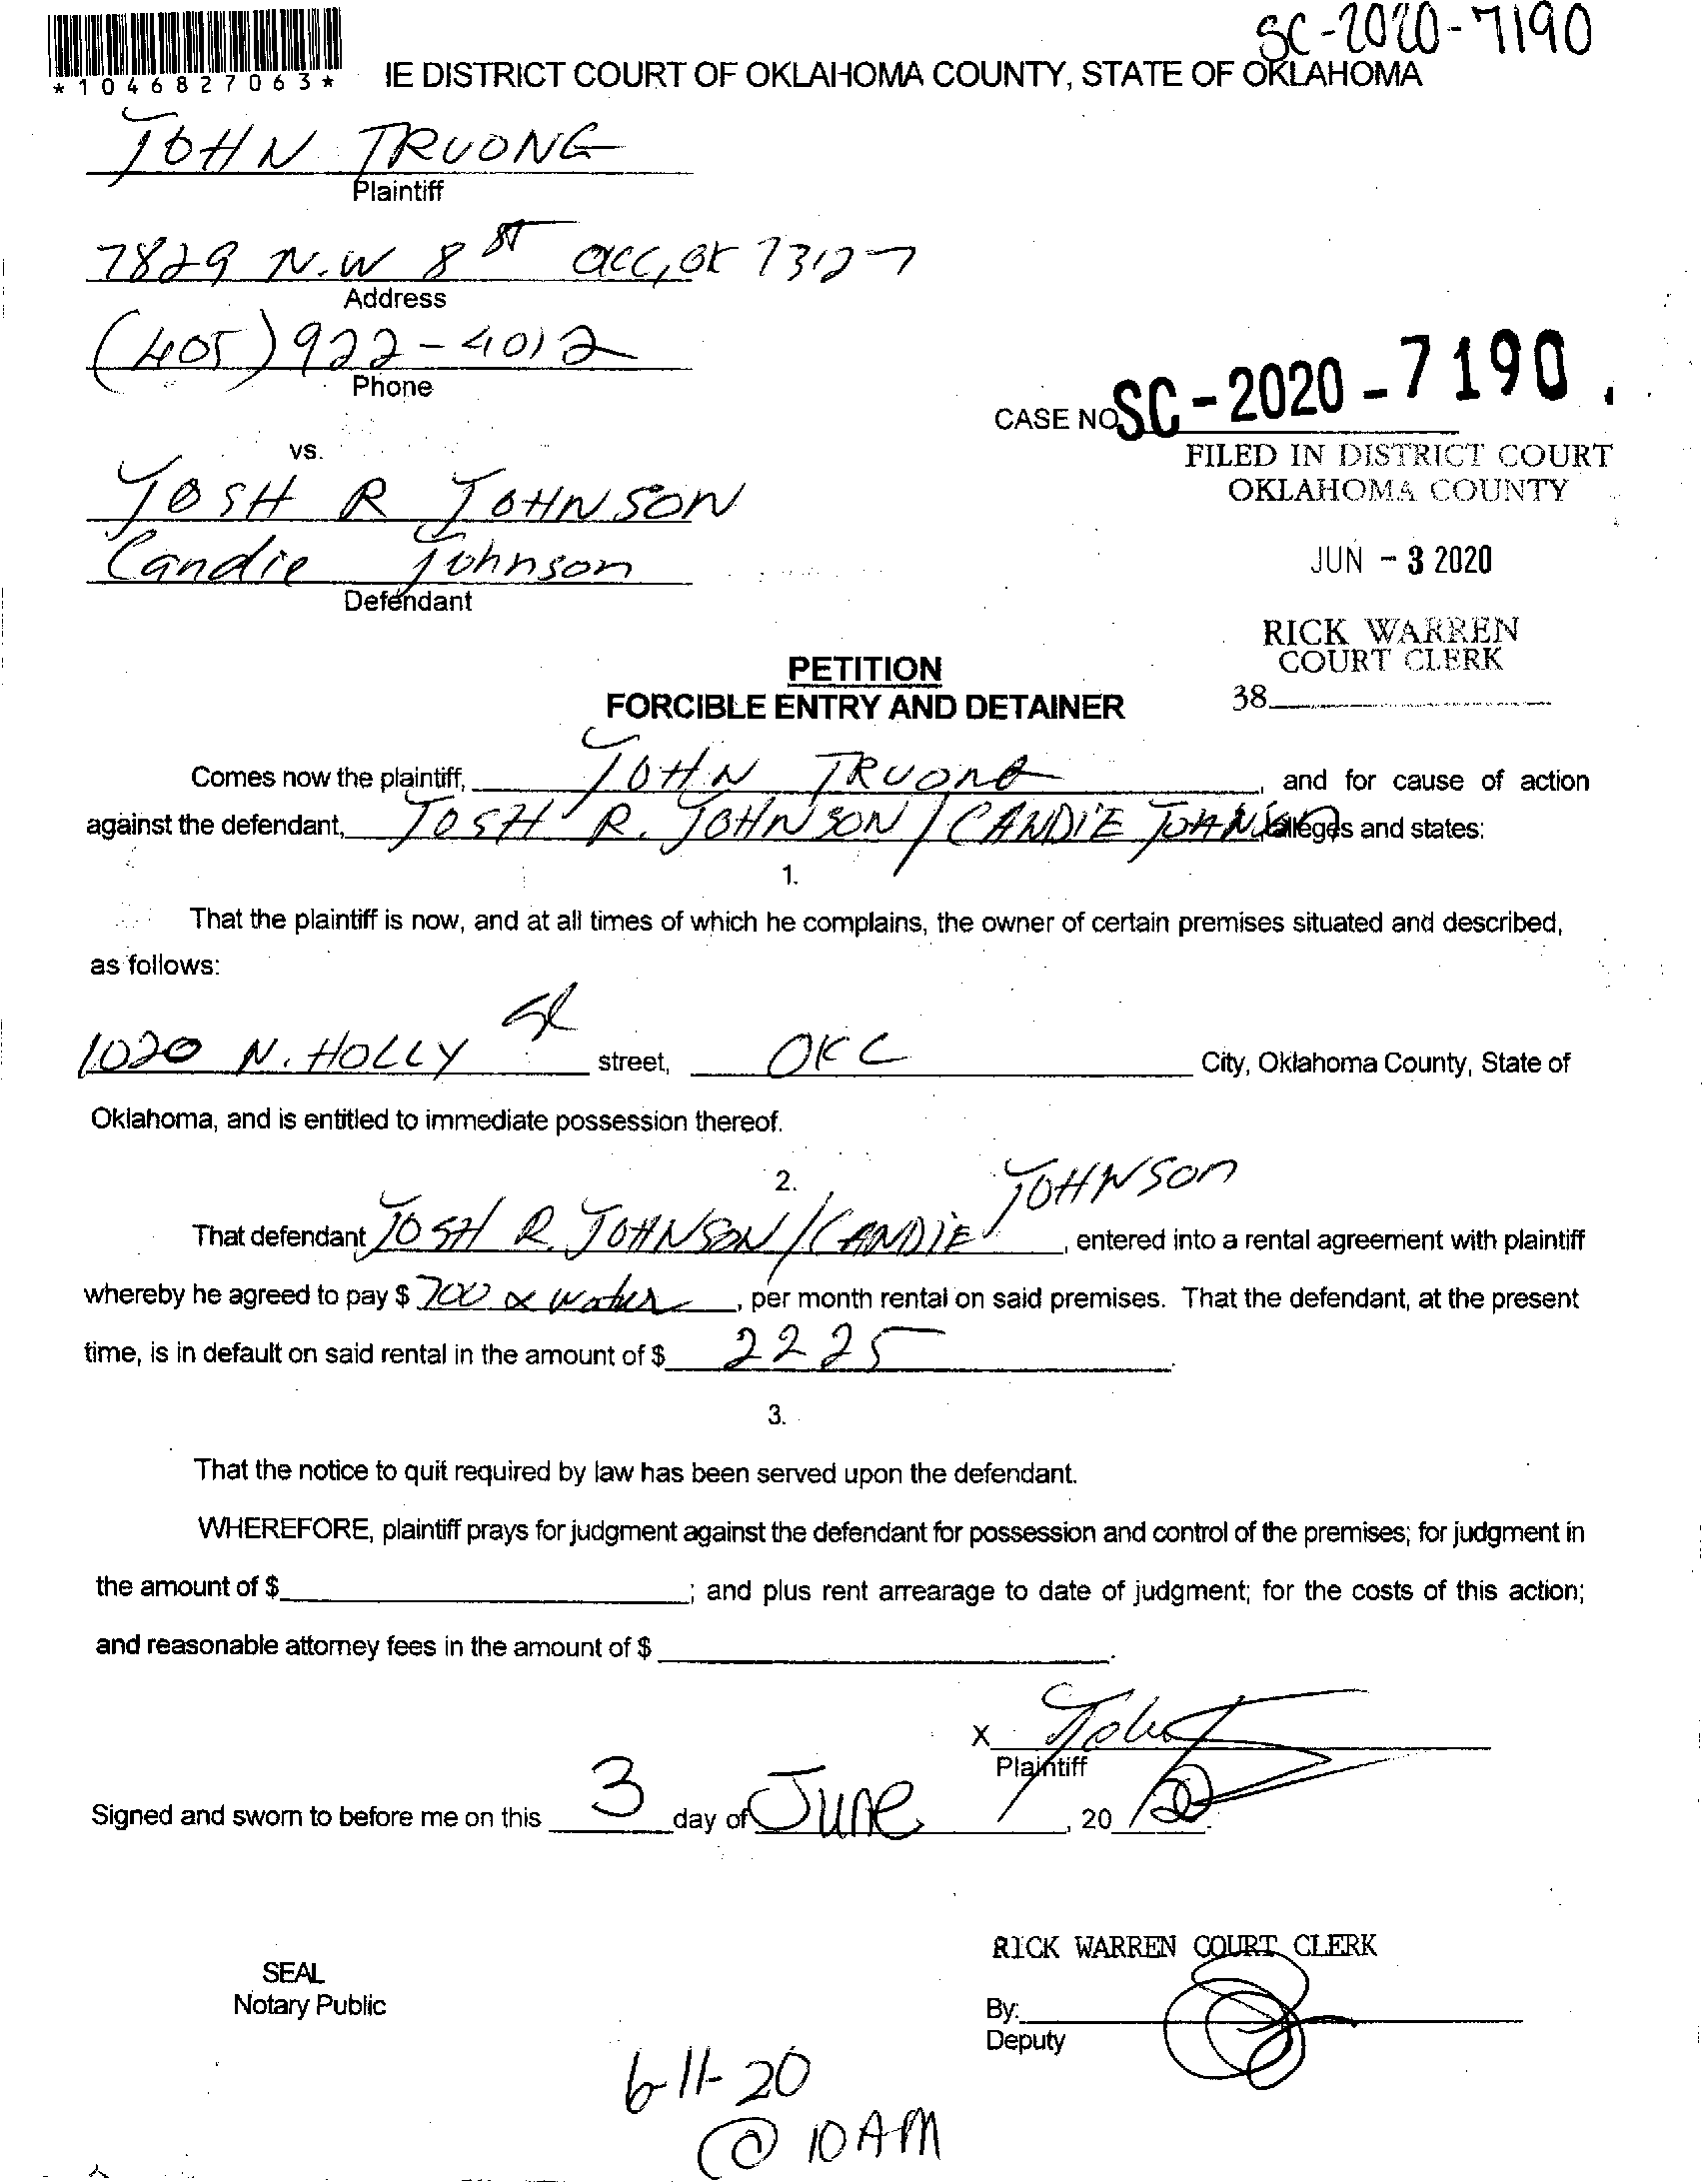 SC-2020-7190
*1046827063*
IE DISTRICT COURT OF OKLAHOMA COUNTY, STATE OF OKLAHOMA
JOHN TRUONG
Plaintiff
7829 N.W 8 ST OCC, OK 73127
Address
(405) 922-4012
Phone
CASE NO. SC-2020-7190.
vs.
FILED IN DISTRICT COURT
OKLAHOMA COUNTY
JOSH R JOHNSON
Candie Johnson
Defendant
JUN - 3 2020
RICK WARREN
COURT CLERK
38
PETITION
FORCIBLE ENTRY AND DETAINER
Comes now the plaintiff, JOHN TRUONG, and for cause of action
against the defendant, JOSH R. JOHNSON / CANDIE JOHNSON alleges and states:
1.
That the plaintiff is now, and at all times of which he complains, the owner of certain premises situated and described,
as follows:
1020 N. HOLLY St street, OKC City, Oklahoma County, State of
Oklahoma, and is entitled to immediate possession thereof.
2.
That defendant JOSH R. JOHNSON / CANDIE JOHNSON, entered into a rental agreement with plaintiff
whereby he agreed to pay $ 700 & water, per month rental on said premises. That the defendant, at the present
time, is in default on said rental in the amount of $ 2225.
3.
That the notice to quit required by law has been served upon the defendant.
WHEREFORE, plaintiff prays for judgment against the defendant for possession and control of the premises; for judgment in
the amount of $ ; and plus rent arrearage to date of judgment; for the costs of this action;
and reasonable attorney fees in the amount of $ .
X
Plaintiff
Signed and sworn to before me on this 3 day of June, 20 20.
RICK WARREN COURT CLERK
SEAL
Notary Public
By:
Deputy
6-11-20
@ 10 AM